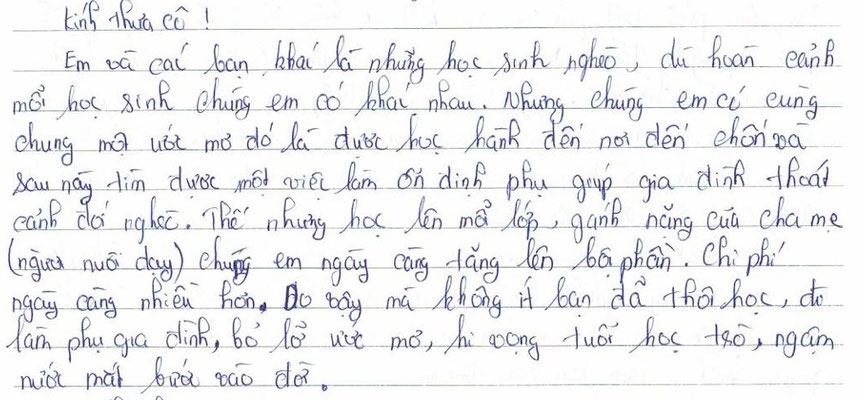 Kính thưa cô !
Em và các bạn khác là những học sinh nghèo, dù hoàn cảnh
mỗi học sinh chúng em có khác nhau. Nhưng chúng em có cùng
chung một ước mơ đó là được học hành đến nơi đến chốn và
sau này tìm được một việc làm ổn định phụ giúp gia đình thoát
cảnh đói nghèo. Thế nhưng học lên mỗi lớp, gánh nặng của cha mẹ
(người nuôi dạy) chúng em ngày càng tăng lên bộ phần. Chi phí
ngày càng nhiều hơn. Do vậy mà không ít bạn đã thôi học, đi
làm phụ gia đình, bỏ lỡ ước mơ, hi vọng tuổi học trò, ngậm
nước mắt bước vào đời.